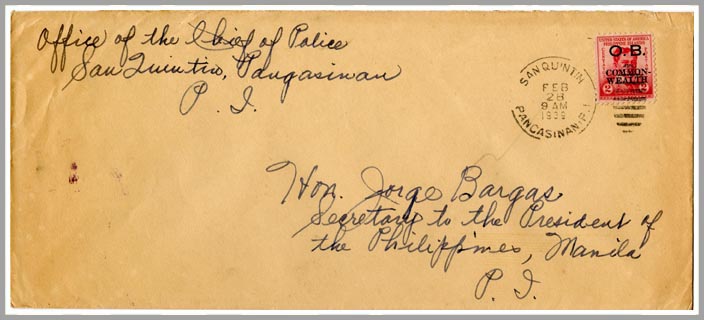 Office of the Chief of Police
San Quintin, Pangasinan
P. I.
SAN QUINTIN
FEB
28
9 AM
1939
PANGASINAN, P.I.
UNITED STATES OF AMERICA
PHILIPPINE ISLANDS
O.B.
COMMON-
WEALTH
2 2
Hon. Jorge Bargas
Secretary to the President of
the Philippines, Manila
P. I.